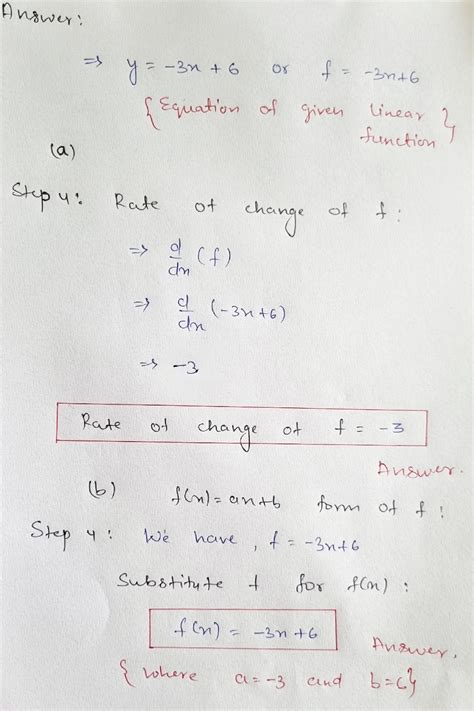 Answer:
⇒ y = -3x + 6 or f = -3x+6
{Equation of given linear
function}
(a)
Step 4: Rate of change of f:
⇒ d/dx (f)
⇒ d/dx (-3x+6)
⇒ -3
Rate of change of f = -3
Answer.
(b) f(x) = ax+b form of f:
Step 4: We have, f = -3x+6
Substitute f for f(x):
f(x) = -3x+6
Answer.
{where a = -3 and b=6}